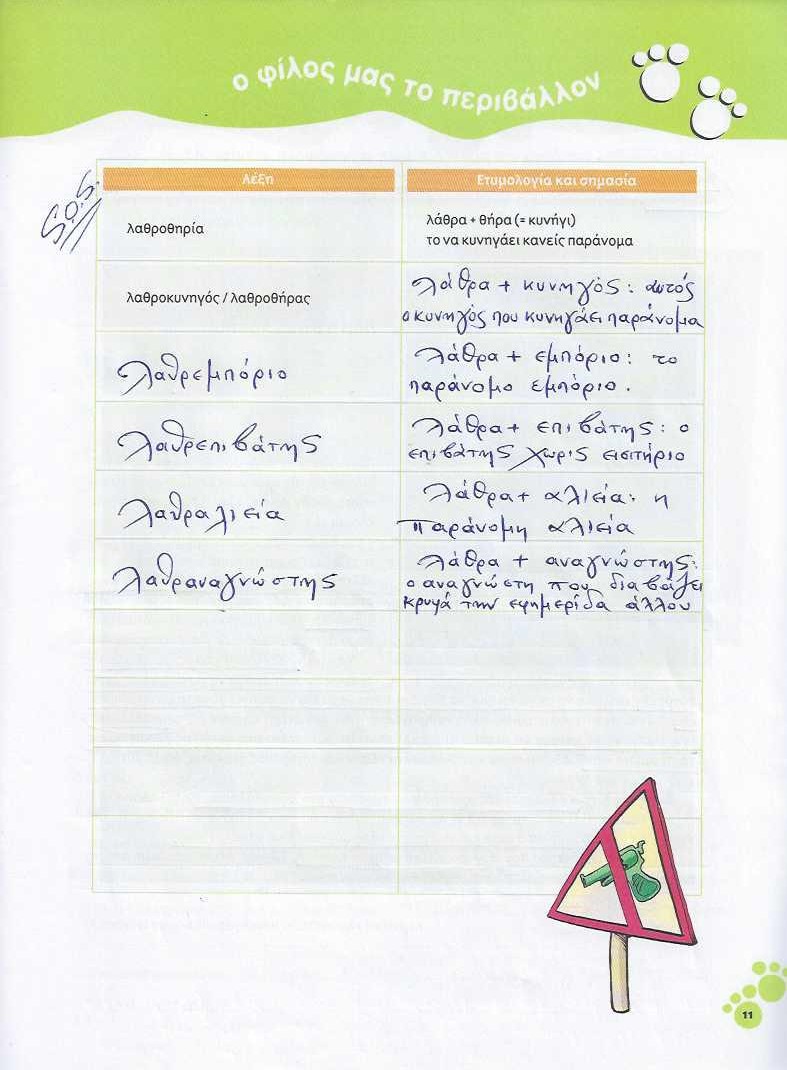 ο φίλος μας το περιβάλλον
S.O.S.
Λέξη
Ετυμολογία και σημασία
λαθροθηρία
λάθρα + θήρα (= κυνήγι)
το να κυνηγάει κανείς παράνομα
λαθροκυνηγός / λαθροθήρας
λάθρα + κυνηγός: αυτός
ο κυνηγός που κυνηγάει παράνομα
λαθρεμπόριο
λάθρα + εμπόριο: το
παράνομο εμπόριο.
λαθρεπιβάτης
λάθρα + επιβάτης: ο
επιβάτης χωρίς εισιτήριο
λαθραλιεία
λάθρα + αλιεία: η
παράνομη αλιεία
λαθραναγνώστης
λάθρα + αναγνώστης:
ο αναγνώστη που διαβάζει
κρυφά την εφημερίδα άλλου
11